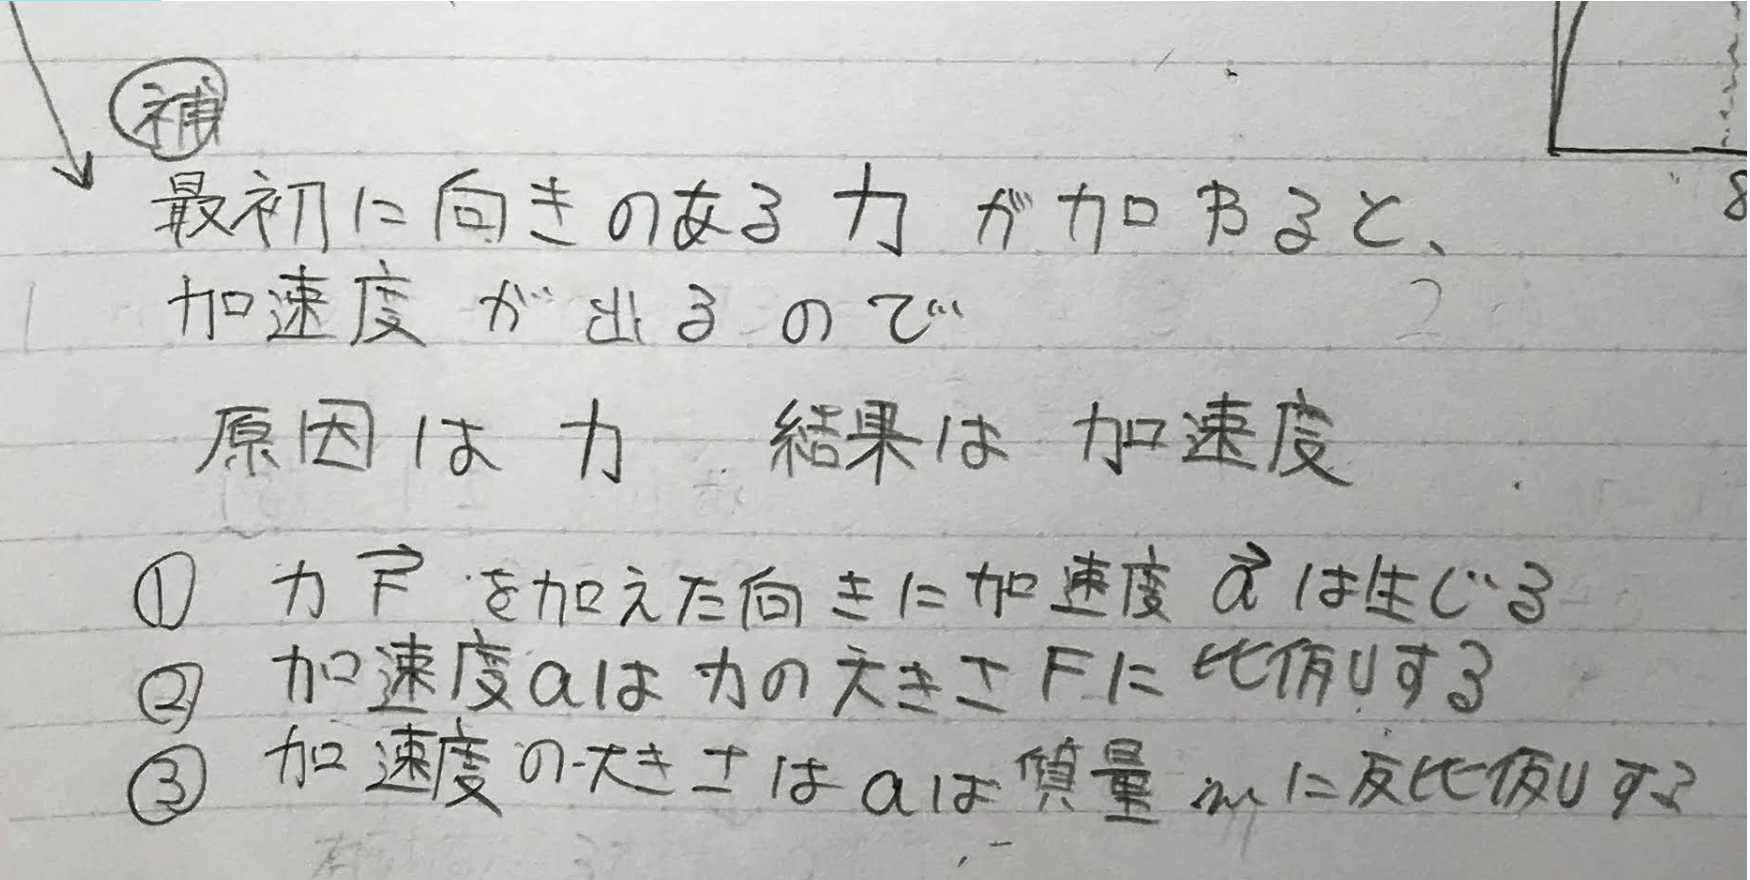 補
最初に向きのある力が加わると、
加速度が出るので
原因は力 結果は加速度
① 力F→を加えた向きに加速度a→は生じる
② 加速度aは力の大きさFに比例する
③ 加速度の大きさはaは質量mに反比例する
8